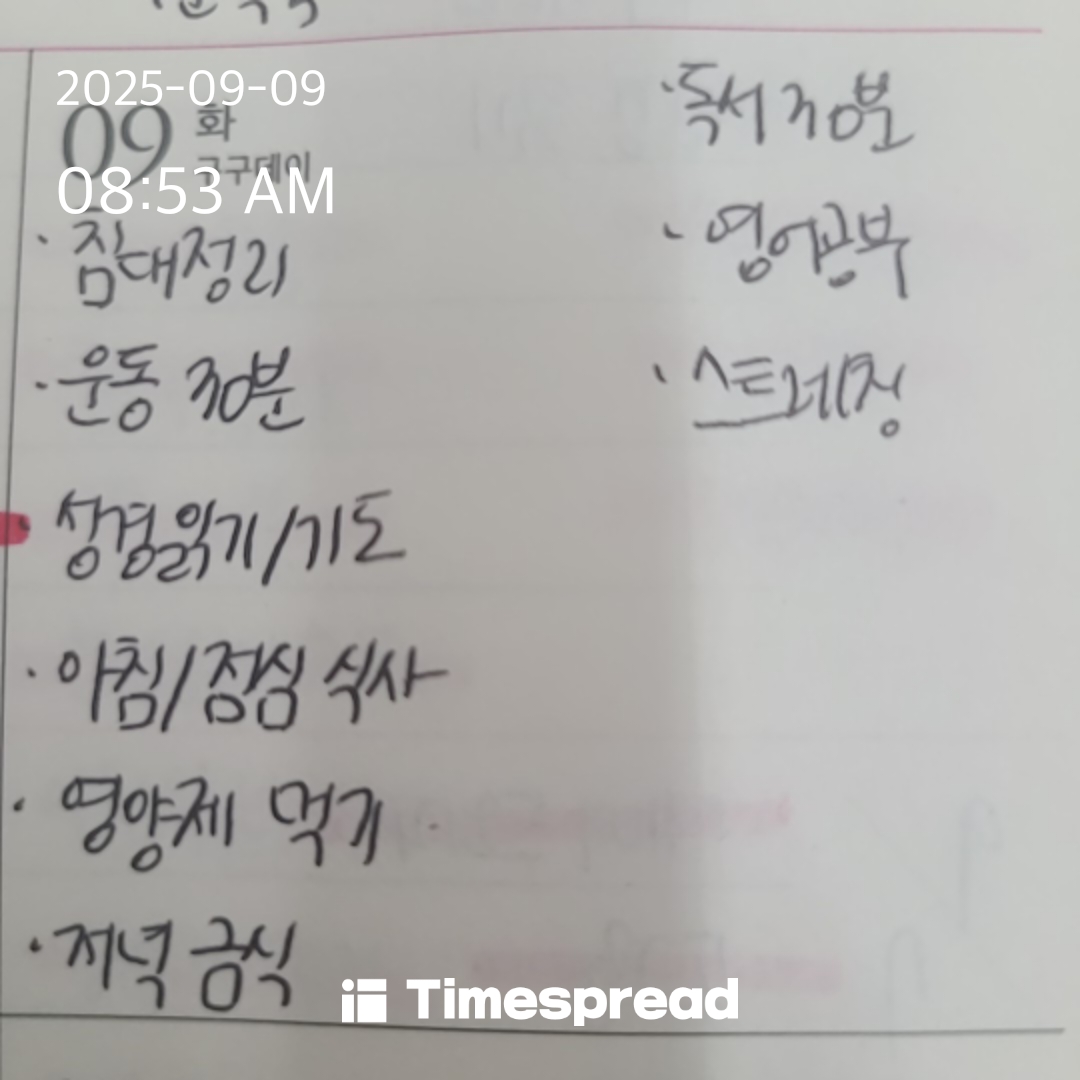 2025-09-09
09 화
구구데이
08:53 AM
· 침대정리
· 운동 30분
· 성경읽기/기도
· 아침/점심 식사
· 영양제 먹기
· 저녁 금식
· 독서 30분
· 영어공부
· 스트레칭
Timespread